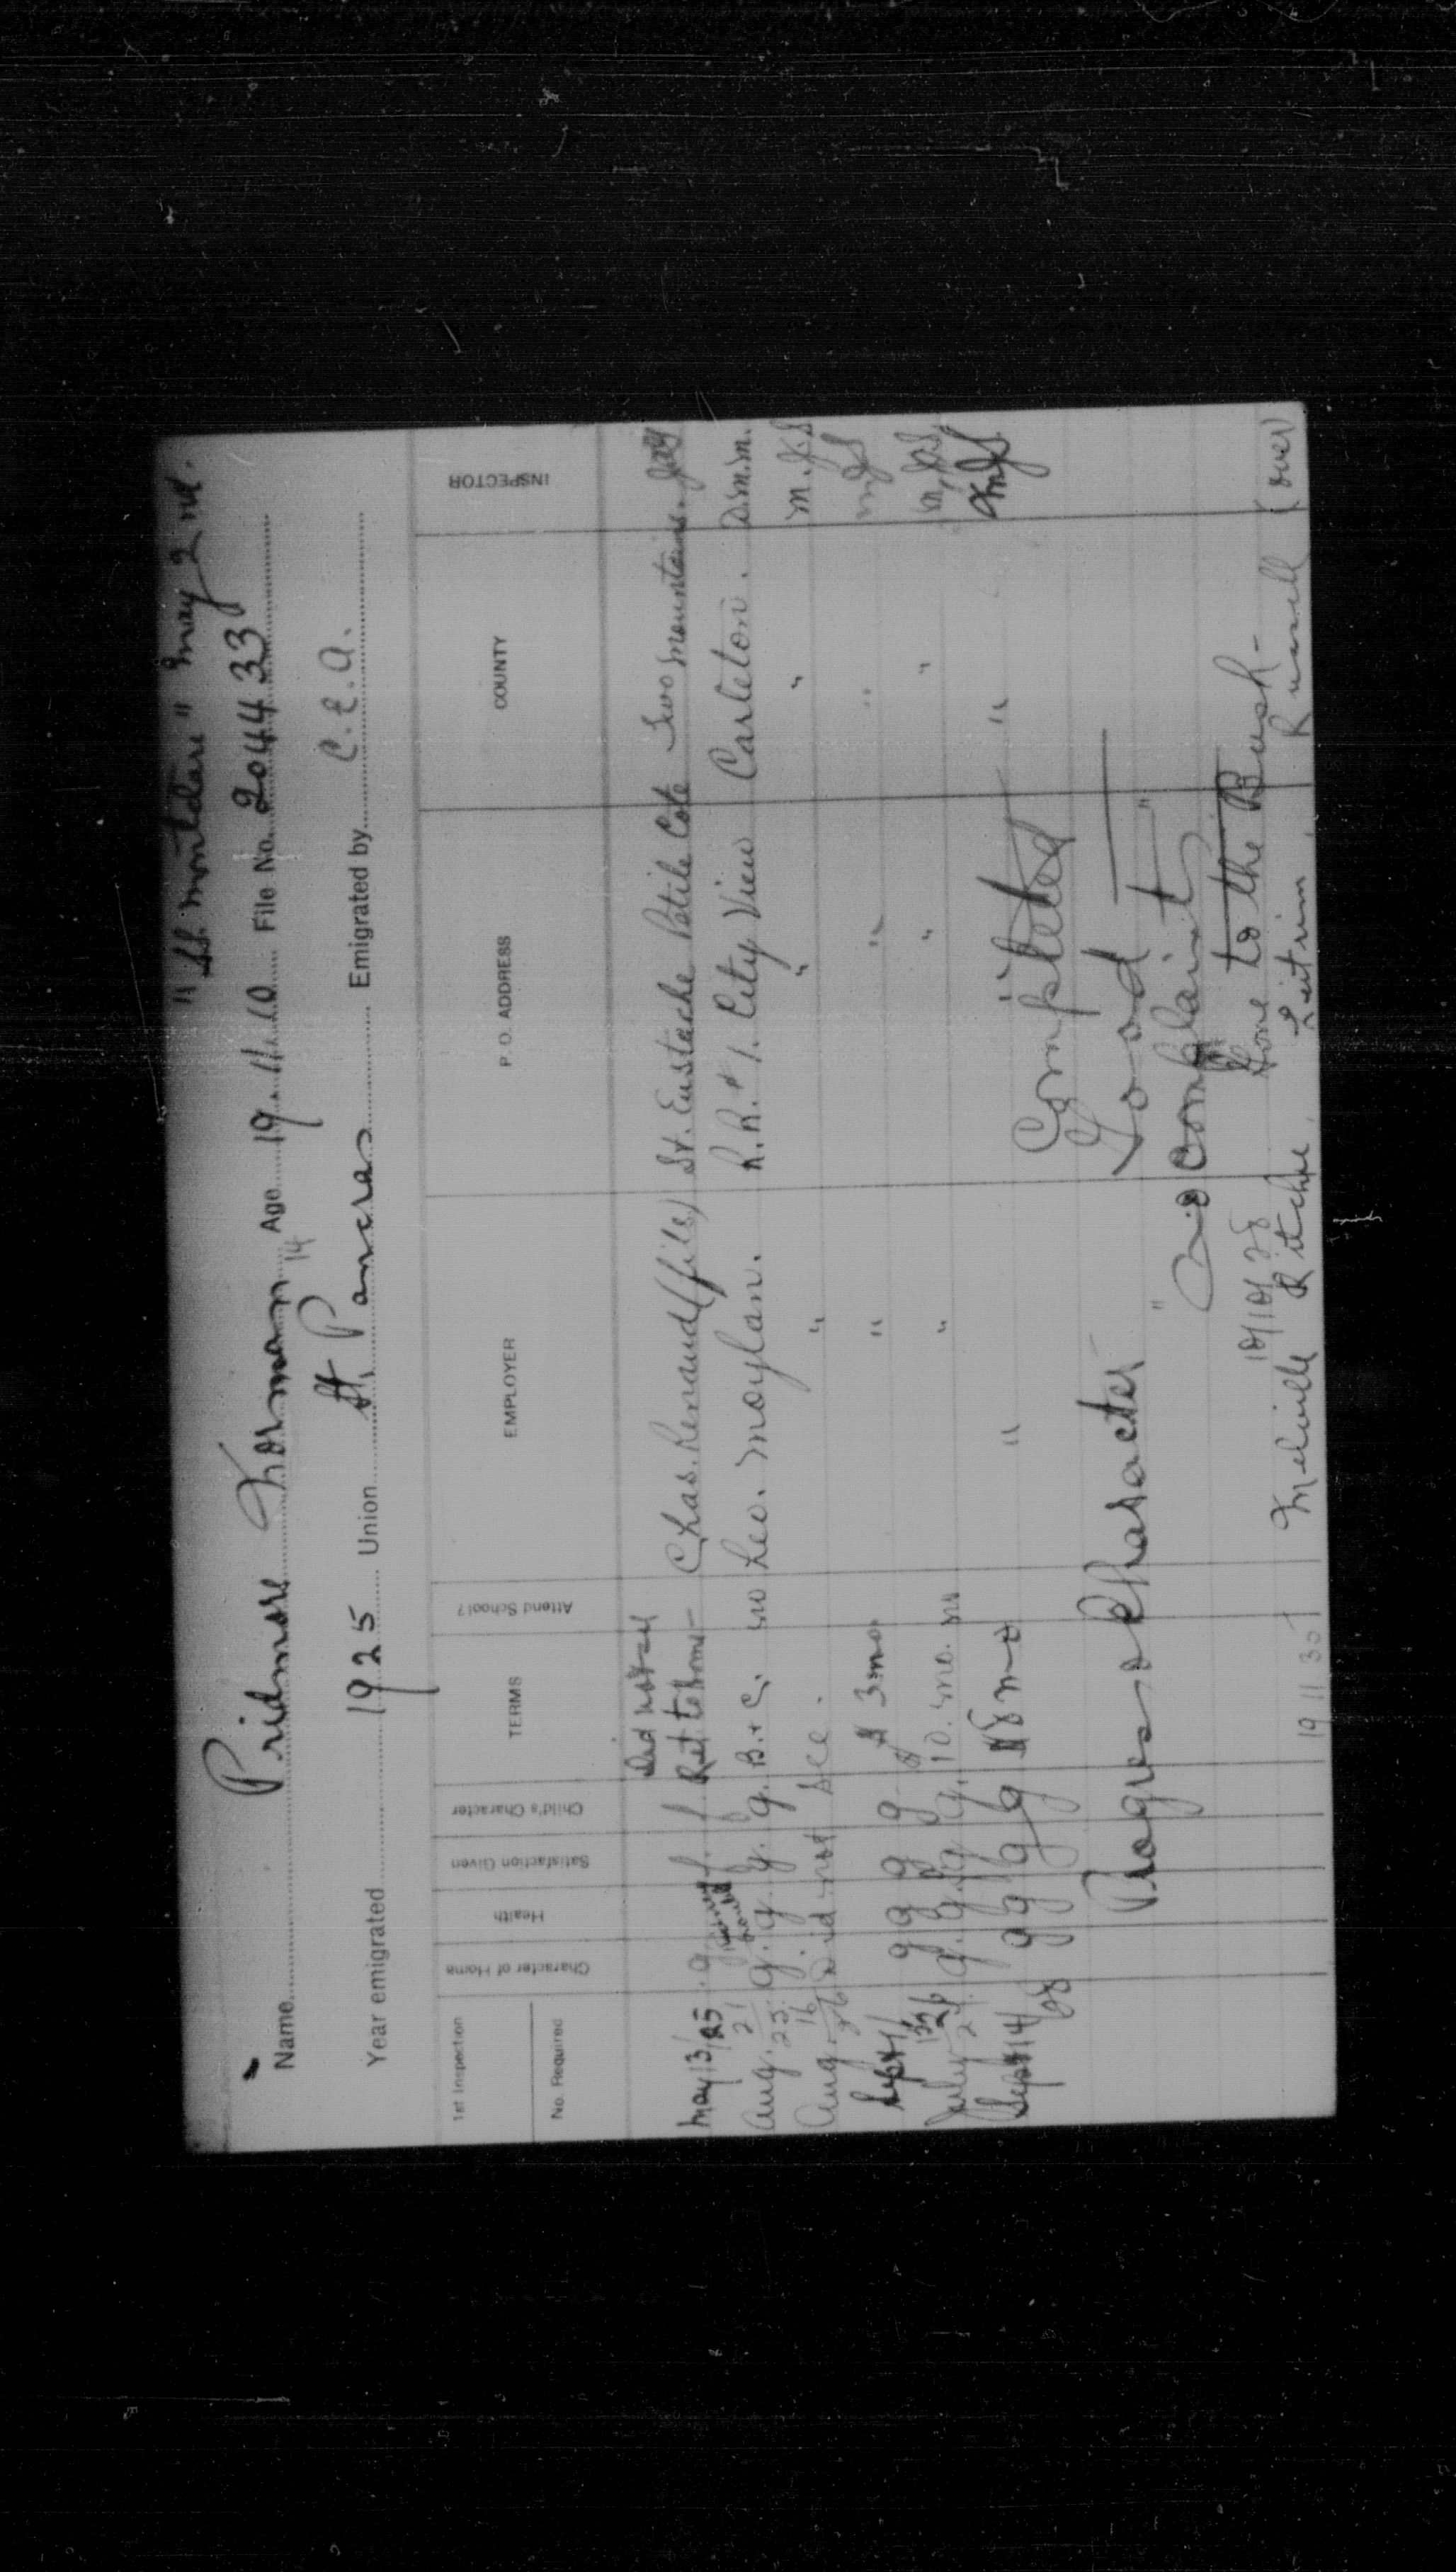 "SS. Montclare" May 2nd.
Name Pridmore Norman 14 Age 19.11.10 File No. 204433
Year emigrated 1925 Union St. Pancras Emigrated by C.E.A.
1st Inspection
No. Required
Character of Home
Health
Satisfaction Given
Child's Character
TERMS
Attend School?
EMPLOYER
P. O. ADDRESS
COUNTY
INSPECTOR
Did not see
May 13/25 g f. f Ret to home - Chas. Renaud (fils) St. Eustache Petite Cote Two Mountains.
Aug. 21/25. g. g. g. g. B.+C. no Leo. Moylan. R.R. #1. City View Carleton. D.M.M.
Aug. 16/26 Did not see. " " " M.J.S
Sept 1/ g g g g 3 mo " " " MJS
July 25 g. g. g. g. 10. mo. no " " " M.J.S.
Sept 14/28 g g g g 18 mo " " " MJS
Completed
Progress & Character Good
" No Complaint"
10/10/28 Gone to the Bush -
19 11 30 Melville Ritchie, Leitrim, Russell (over)